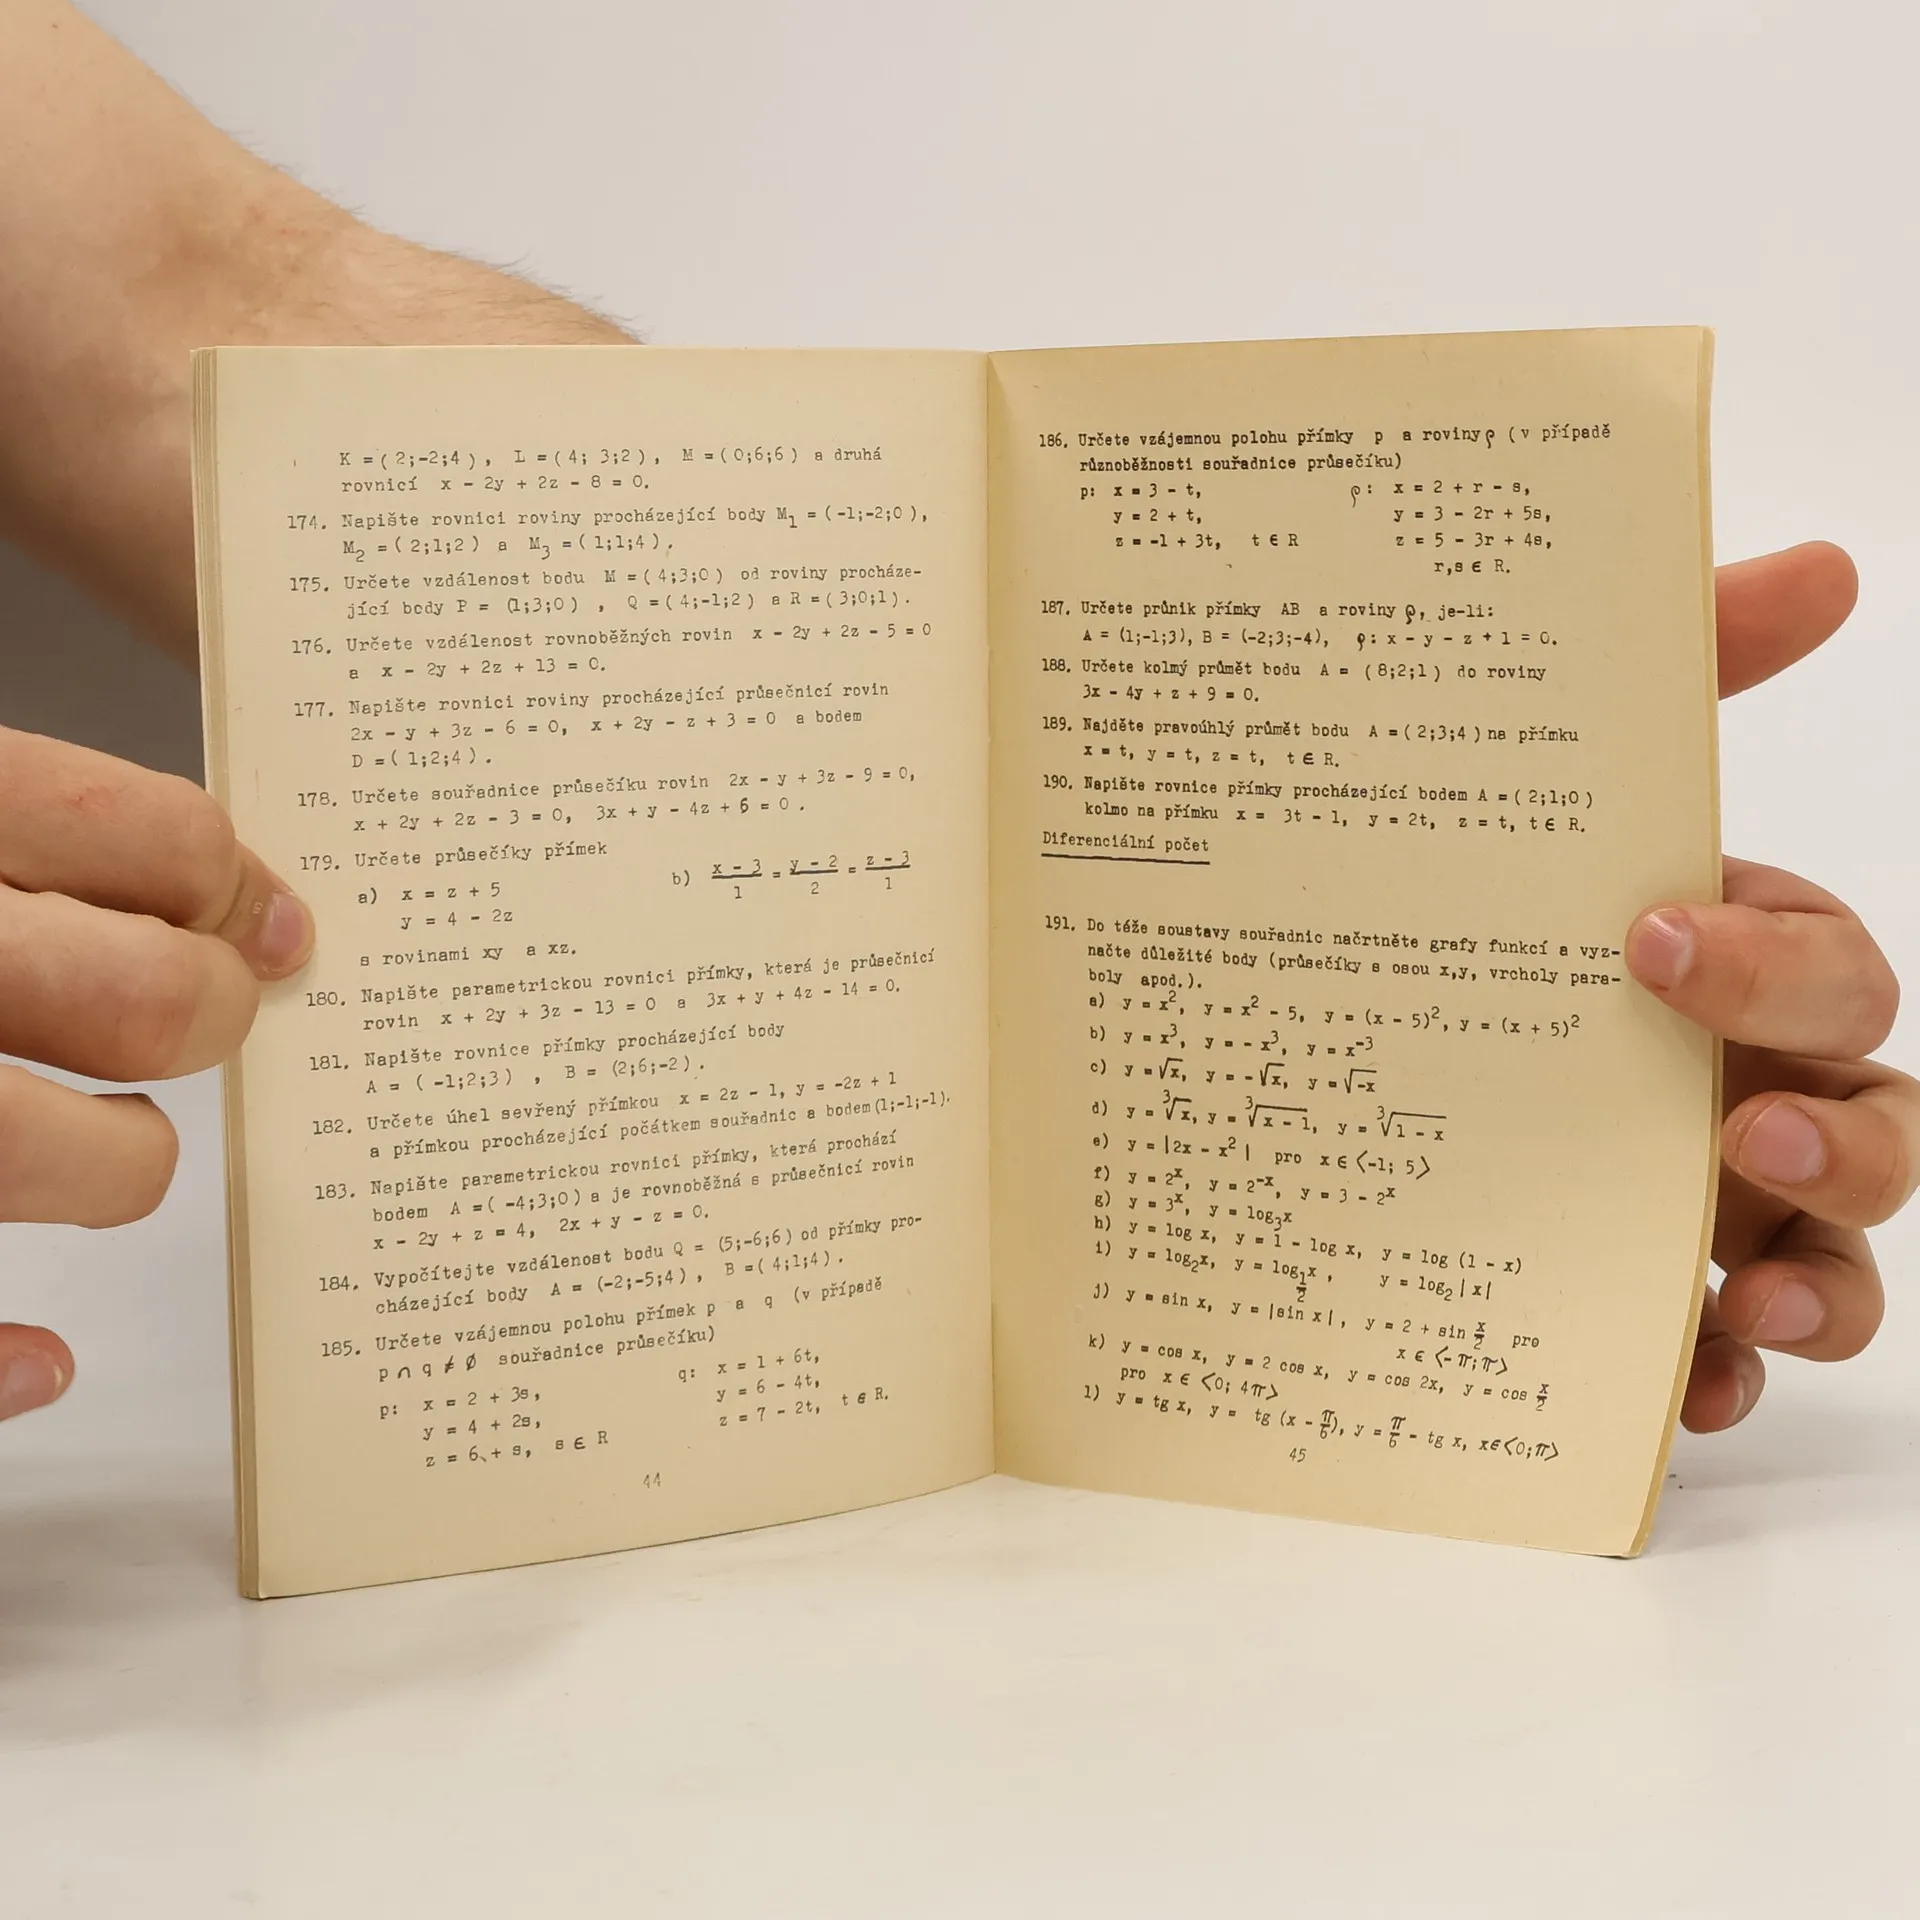 K = ( 2;-2;4 ), L = ( 4; 3;2 ), M = ( 0;6;6 ) a druhá
rovnicí x - 2y + 2z - 8 = 0.
174. Napište rovnici roviny procházející body M₁ = ( -1;-2;0 ),
M₂ = ( 2;1;2 ) a M₃ = ( 1;1;4 ).
175. Určete vzdálenost bodu M = ( 4;3;0 ) od roviny procháze-
jící body P = (1;3;0) , Q = ( 4;-1;2 ) a R = ( 3;0;1 ).
176. Určete vzdálenost rovnoběžných rovin x - 2y + 2z - 5 = 0
a x - 2y + 2z + 13 = 0.
177. Napište rovnici roviny procházející průsečnicí rovin
2x - y + 3z - 6 = 0, x + 2y - z + 3 = 0 a bodem
D = ( 1;2;4 ).
178. Určete souřadnice průsečíku rovin 2x - y + 3z - 9 = 0,
x + 2y + 2z - 3 = 0, 3x + y - 4z + 6 = 0 .
179. Určete průsečíky přímek
a) x = z + 5 b) (x - 3)/1 = (y - 2)/2 = (z - 3)/1
y = 4 - 2z
s rovinami xy a xz.
180. Napište parametrickou rovnici přímky, která je průsečnicí
rovin x + 2y + 3z - 13 = 0 a 3x + y + 4z - 14 = 0.
181. Napište rovnice přímky procházející body
A = ( -1;2;3 ) , B = (2;6;-2 ).
182. Určete úhel sevřený přímkou x = 2z - 1, y = -2z + 1
a přímkou procházející počátkem souřadnic a bodem (1;-1;-1).
183. Napište parametrickou rovnici přímky, která prochází
bodem A = ( -4;3;0 ) a je rovnoběžná s průsečnicí rovin
x - 2y + z = 4, 2x + y - z = 0.
184. Vypočítejte vzdálenost bodu Q = (5;-6;6 ) od přímky pro-
cházející body A = (-2;-5;4 ) , B = ( 4;1;4 ).
185. Určete vzájemnou polohu přímek p a q (v případě
p ∩ q ≠ ∅ souřadnice průsečíku)
p: x = 2 + 3s, q: x = 1 + 6t,
y = 4 + 2s, y = 6 - 4t,
z = 6 + s, s ∈ R z = 7 - 2t, t ∈ R.
44
186. Určete vzájemnou polohu přímky p a roviny ρ (v případě
různoběžnosti souřadnice průsečíku)
p: x = 3 - t, ρ: x = 2 + r - s,
y = 2 + t, y = 3 - 2r + 5s,
z = -1 + 3t, t ∈ R z = 5 - 3r + 4s,
r,s ∈ R.
187. Určete průnik přímky AB a roviny ρ, je-li:
A = (1;-1;3), B = (-2;3;-4), ρ: x - y - z + 1 = 0.
188. Určete kolmý průmět bodu A = ( 8;2;1 ) do roviny
3x - 4y + z + 9 = 0.
189. Najděte pravoúhlý průmět bodu A = ( 2;3;4 ) na přímku
x = t, y = t, z = t, t ∈ R.
190. Napište rovnice přímky procházející bodem A = ( 2;1;0 )
kolmo na přímku x = 3t - 1, y = 2t, z = t, t ∈ R.
Diferenciální počet
191. Do téže soustavy souřadnic načrtněte grafy funkcí a vyz-
načte důležité body (průsečíky s osou x,y, vrcholy para-
boly apod.).
a) y = x², y = x² - 5, y = (x - 5)², y = (x + 5)²
b) y = x³, y = - x³, y = x⁻³
c) y = √x, y = - √x, y = √-x
d) y = ∛x, y = ∛(x - 1), y = ∛(1 - x)
e) y = |2x - x² | pro x ∈ ⟨-1; 5⟩
f) y = 2ˣ, y = 2⁻ˣ, y = 3 - 2ˣ
g) y = 3ˣ, y = log₃x
h) y = log x, y = 1 - log x, y = log (1 - x)
i) y = log₂x, y = log_{1/2} x , y = log₂ | x |
j) y = sin x, y = |sin x| , y = 2 + sin x/2 pro
x ∈ ⟨-π;π⟩
k) y = cos x, y = 2 cos x, y = cos 2x, y = cos x/2
pro x ∈ ⟨0; 4π⟩
l) y = tg x, y = tg (x - π/6), y = π/6 - tg x, x∈⟨0;π⟩
45